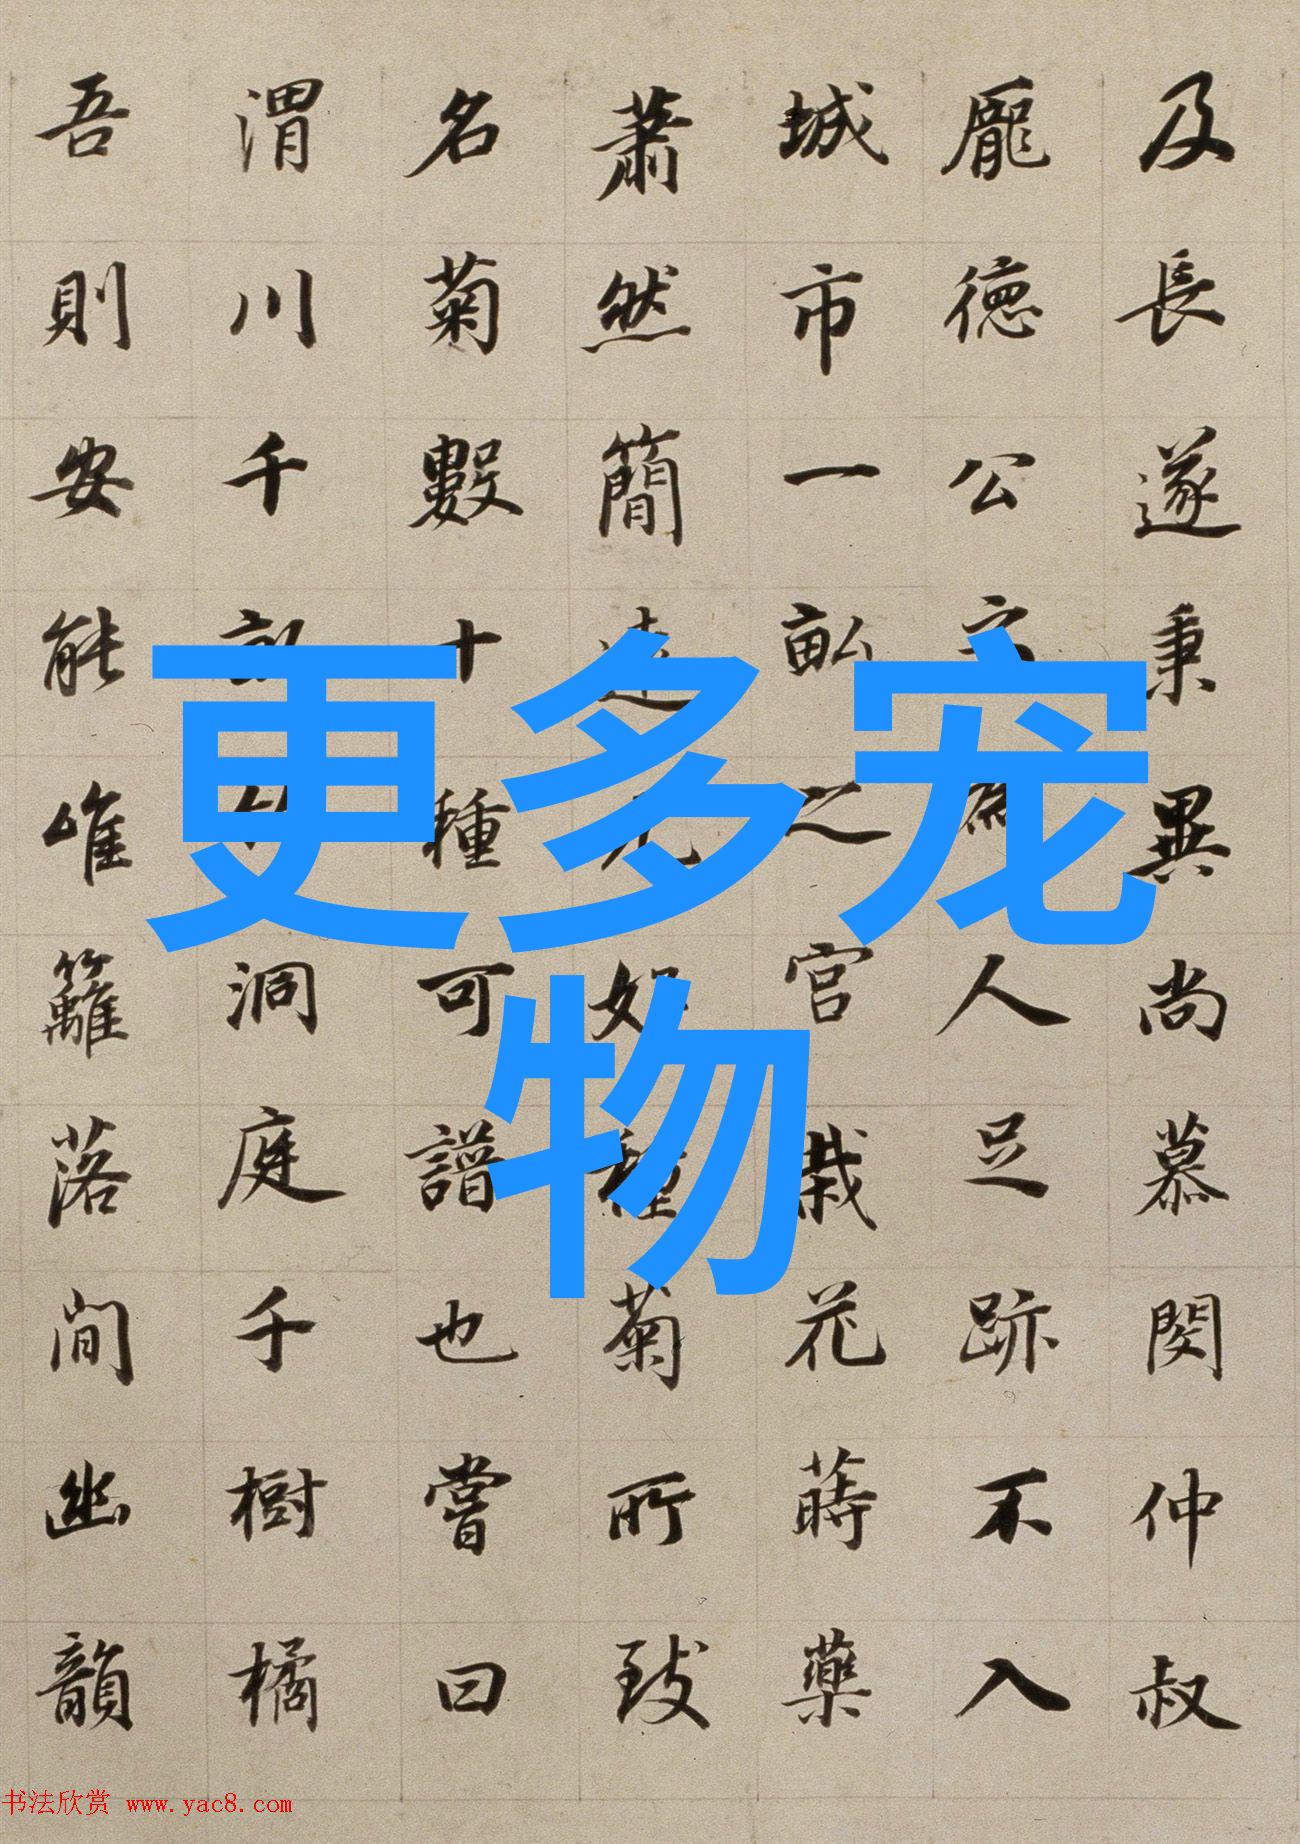 及長遂秉異尚慕閔仲叔
龐德公之為人足跡不入
城市一畝之宮栽花蒔藥
蕭然簡遠尤好種菊所致
名菊數十種可譜也嘗曰
渭川千畝竹洞庭千樹橘
吾則安能唯籬落間幽韻
更多宠
物
书法欣赏 www.yac8.com